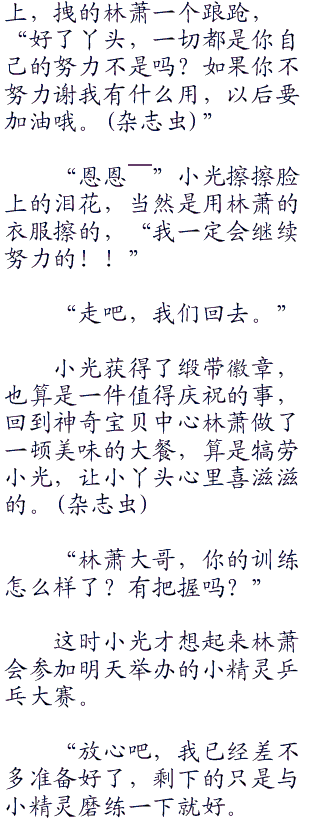 上，拽的林萧一个踉跄，
“好了丫头，一切都是你自
己的努力不是吗？如果你不
努力谢我有什么用，以后要
加油哦。(杂志虫)”
“恩恩——”小光擦擦脸
上的泪花，当然是用林萧的
衣服擦的，“我一定会继续
努力的！！”
“走吧，我们回去。”
小光获得了缎带徽章，
也算是一件值得庆祝的事，
回到神奇宝贝中心林萧做了
一顿美味的大餐，算是犒劳
小光，让小丫头心里喜滋滋
的。(杂志虫)
“林萧大哥，你的训练
怎么样了？有把握吗？”
这时小光才想起来林萧
会参加明天举办的小精灵乒
乓大赛。
“放心吧，我已经差不
多准备好了，剩下的只是与
小精灵磨练一下就好。